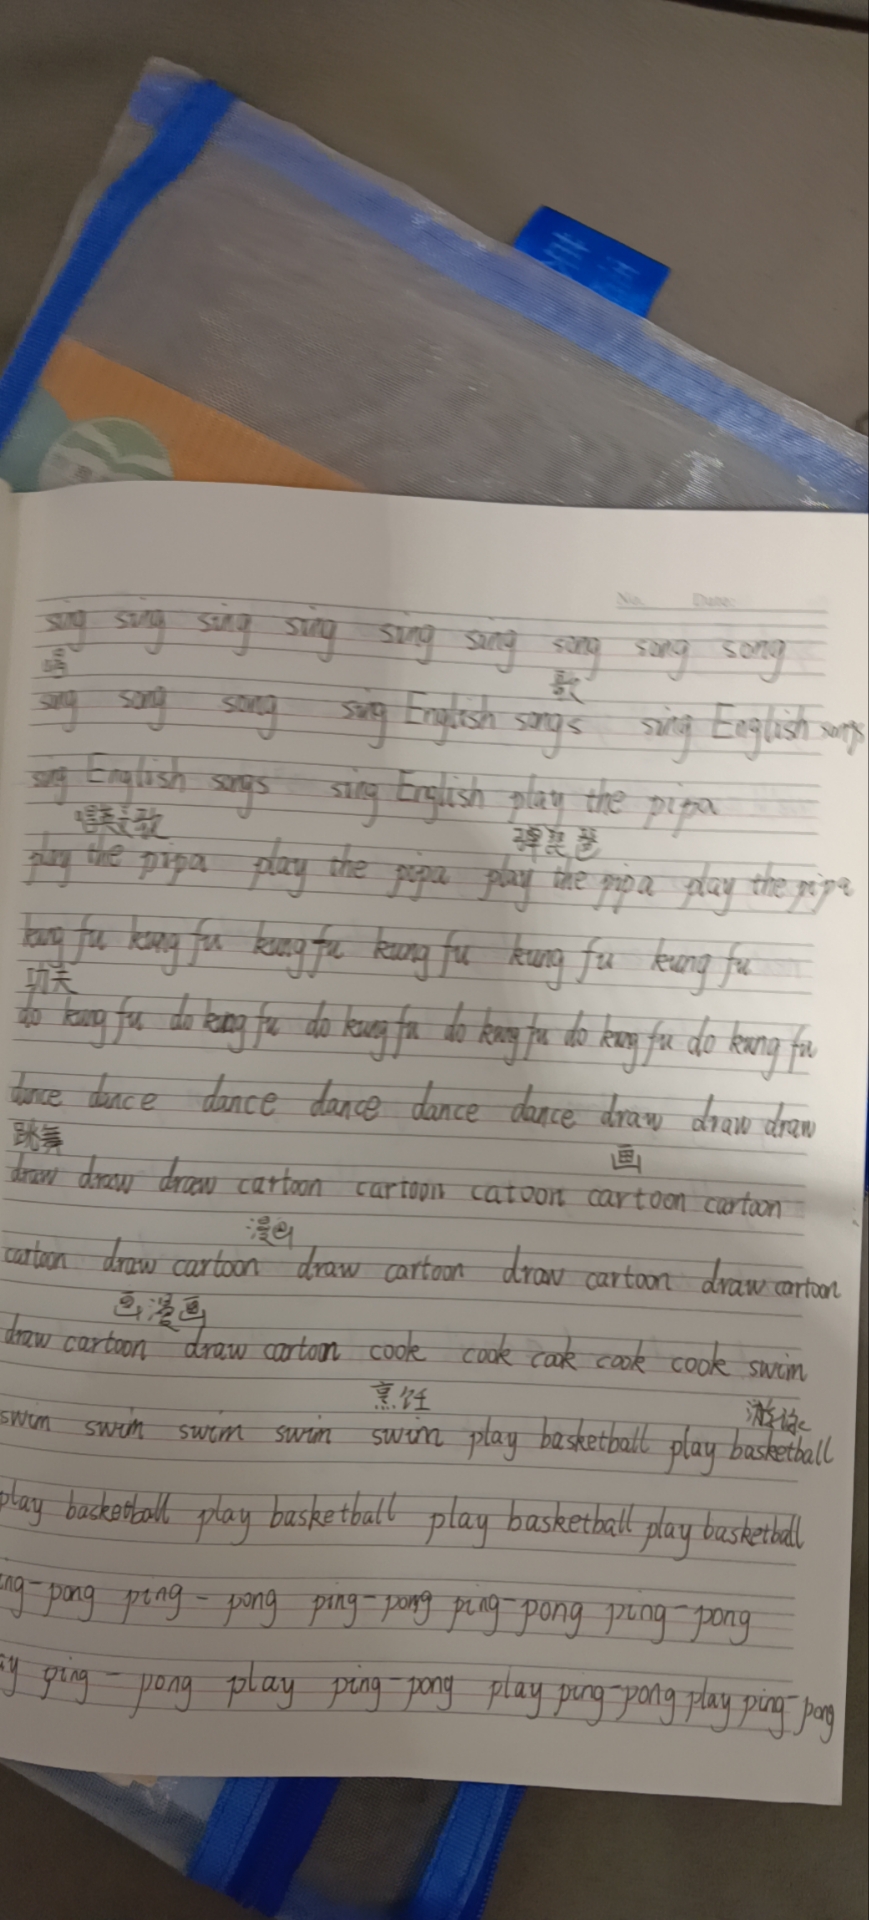 No. Date:
sing sing sing sing sing sing song song song
唱 歌
song song song sing English songs sing English songs
sing English songs sing English play the pipa
唱英文歌 弹琵琶
play the pipa play the pipa play the pipa play the pipa
kung fu kung fu kung fu kung fu kung fu kung fu
功夫
do kung fu do kung fu do kung fu do kung fu do kung fu do kung fu
dance dance dance dance dance dance draw draw draw
跳舞 画
draw draw draw cartoon cartoon catoon cartoon cartoon
漫画
cartoon draw cartoon draw cartoon draw cartoon draw cartoon
画漫画
draw cartoon draw cartoon cook cook cook cook cook swim
烹饪 游泳
swim swim swim swim swim play basketball play basketball
play basketball play basketball play basketball play basketball
ng-pong ping-pong ping-pong ping-pong ping-pong
ay ping-pong play ping-pong play ping-pong play ping-pong